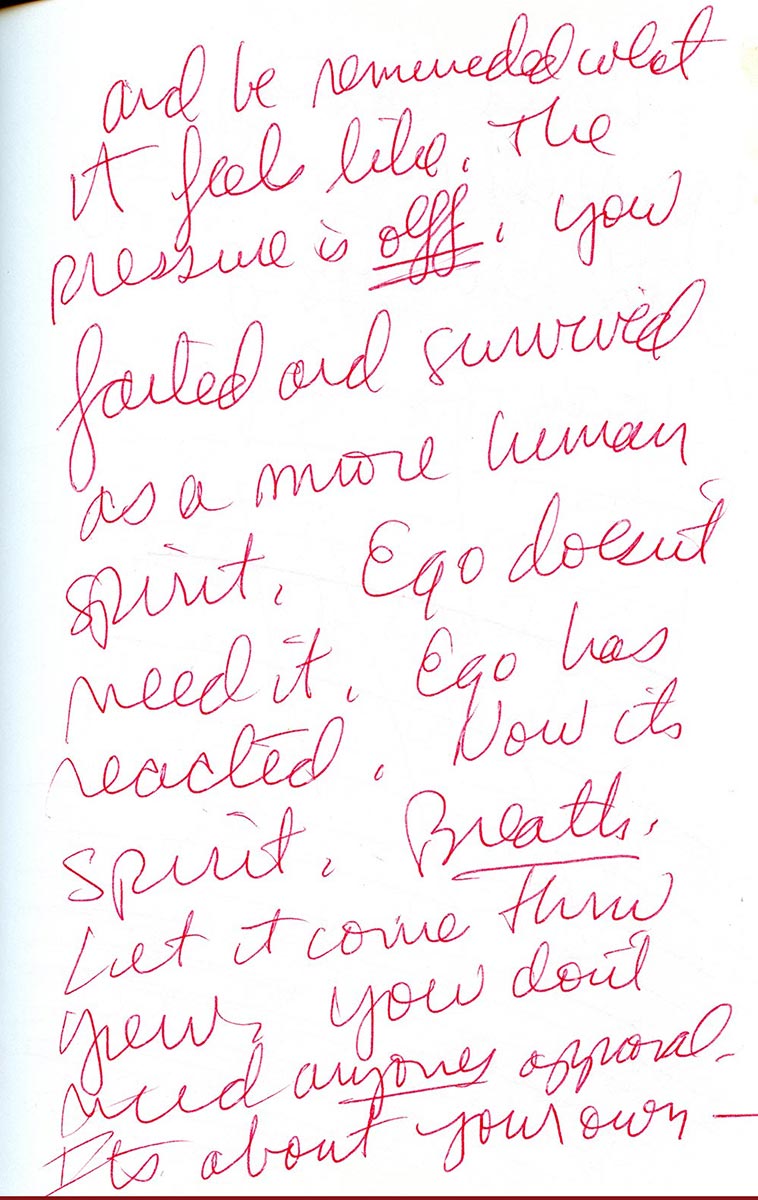 and be remineded what
it feels like. The
pressure is off. You
failed and survived
as a more human
spirit. Ego doesn't
need it. Ego has
reacted. Now its
spirit. Breath.
Let it come thru
you. You don't
need anyones approval.
Its about your own —